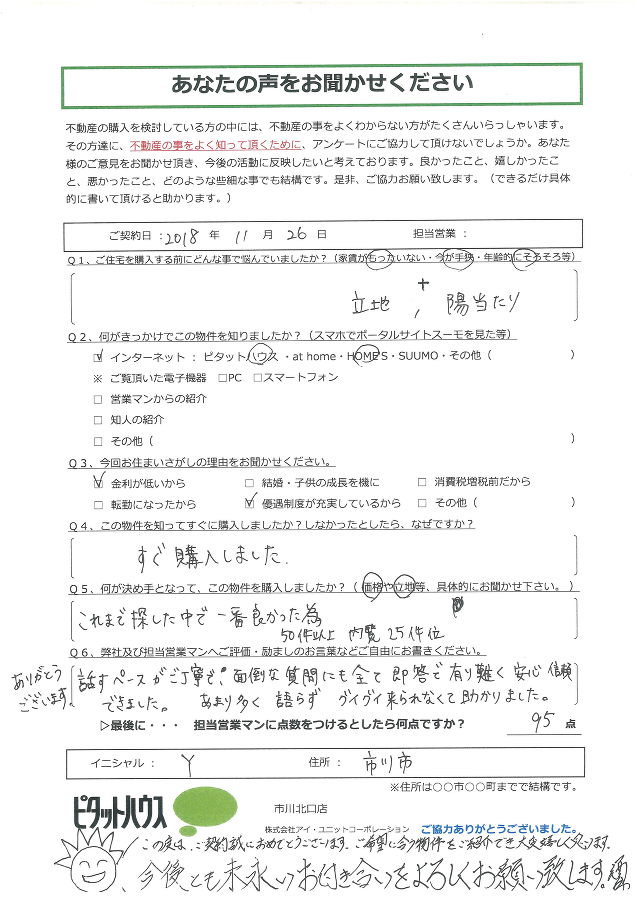 あなたの声をお聞かせください
不動産の購入を検討している方の中には、不動産の事をよくわからない方がたくさんいらっしゃいます。
その方達に、不動産の事をよく知って頂くために、アンケートにご協力して頂けないでしょうか。あなた
様のご意見をお聞かせ頂き、今後の活動に反映したいと考えております。良かったこと、嬉しかったこ
と、悪かったこと、どのような些細な事でも結構です。是非、ご協力お願い致します。（できるだけ具体
的に書いて頂けると助かります。）
ご契約日：2018 年 11 月 26 日 担当営業：
Q１、ご住宅を購入する前にどんな事で悩んでいましたか？（家賃がもったいない・今が手狭・年齢的にそろそろ等）
+
立地 , 陽当たり
Q２、何がきっかけでこの物件を知りましたか？（スマホでポータルサイトスーモを見た等）
☑ インターネット：ピタットハウス・at home・HOME'S・SUUMO・その他（ ）
※ ご覧頂いた電子機器 □PC □スマートフォン
□ 営業マンからの紹介
□ 知人の紹介
□ その他（ ）
Q３、今回お住まいさがしの理由をお聞かせください。
☑ 金利が低いから □ 結婚・子供の成長を機に □ 消費税増税前だから
□ 転勤になったから ☑ 優遇制度が充実しているから □ その他（ ）
Q４、この物件を知ってすぐに購入しましたか？しなかったとしたら、なぜですか？
すぐ購入しました.
Q５、何が決め手となって、この物件を購入しましたか？（価格や立地等、具体的にお聞かせ下さい。）
これまで探した中で一番良かった為
50件以上 内覧25件位
Q６、弊社及び担当営業マンへご評価・励ましのお言葉などご自由にお書きください。
ありがとうございます
話すペースがご丁寧で、面倒な質問にも全て即答で有り難く安心信頼
できました。 あまり多く語らず グイグイ来られなくて助かりました。
▷最後に・・・ 担当営業マンに点数をつけるとしたら何点ですか？ 95 点
イニシャル： Y 住所： 市川市
※住所は○○市○○町までで結構です。
ピタットハウス
市川北口店
株式会社アイ・ユニットコーポレーション ご協力ありがとうございました。
この度は、ご契約誠におめでとうございます。ご希望に合う物件をご紹介でき大変嬉しく思います。
今後とも末永いお付き合いをよろしくお願い致します。